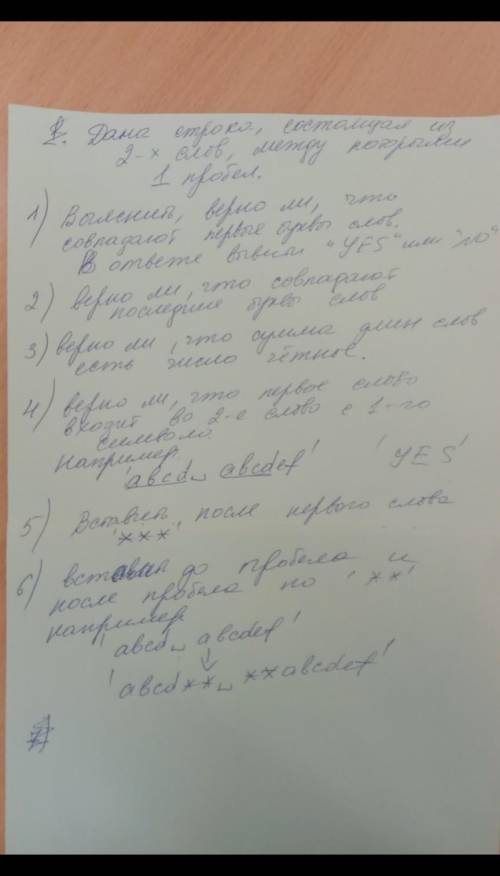 1. Дана строка, состоящая из
2-х слов, между которыми
1 пробел.
1) Выяснить, верно ли, что
совпадают первые буквы слов.
В ответе вывести "YES" или "NO"
2) верно ли, что совпадают
последние буквы слов
3) верно ли, что сумма длин слов
есть число чётное.
4) верно ли, что первое слово
входит во 2-е слово с 1-го
символа.
Например
'abcd␣abcdef' 'YES'
5) Вставить после первого слова
'***'
6) вставить до пробела и
после пробела по '**'
например
'abcd␣abcdef'
↓
'abcd**␣**abcdef'